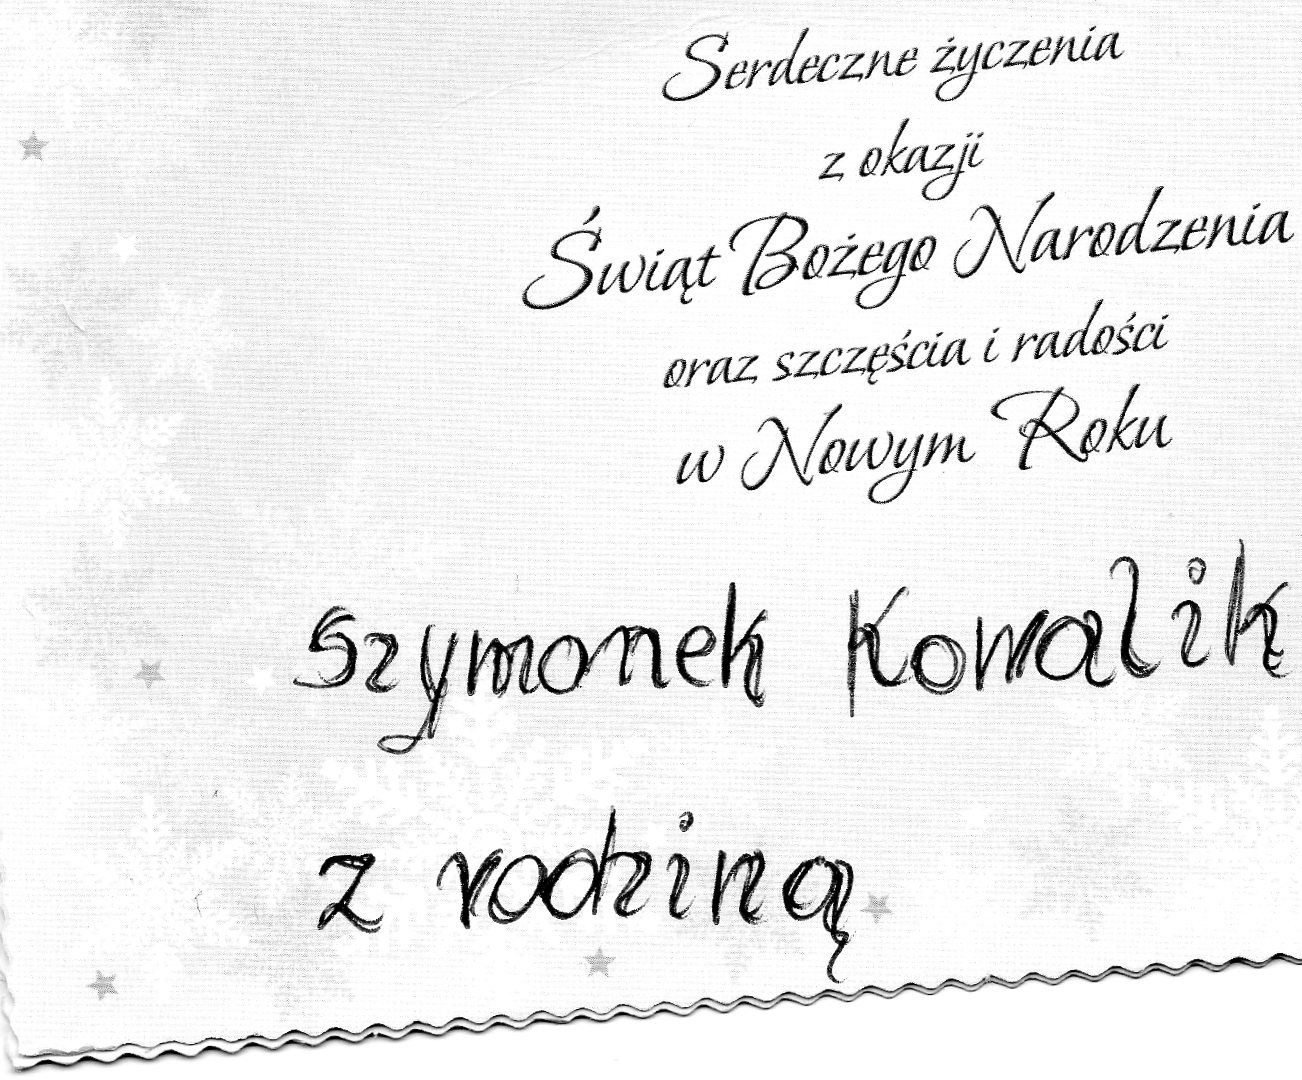 Serdeczne życzenia
z okazji
Świąt Bożego Narodzenia
oraz szczęścia i radości
w Nowym Roku
Szymonek Kowalik
z rodziną